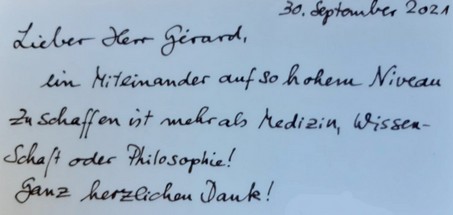 30. September 2021
Lieber Herr Gérard,
ein Miteinander auf so hohem Niveau
zu schaffen ist mehr als Medizin, Wissen-
schaft oder Philosophie!
Ganz herzlichen Dank!